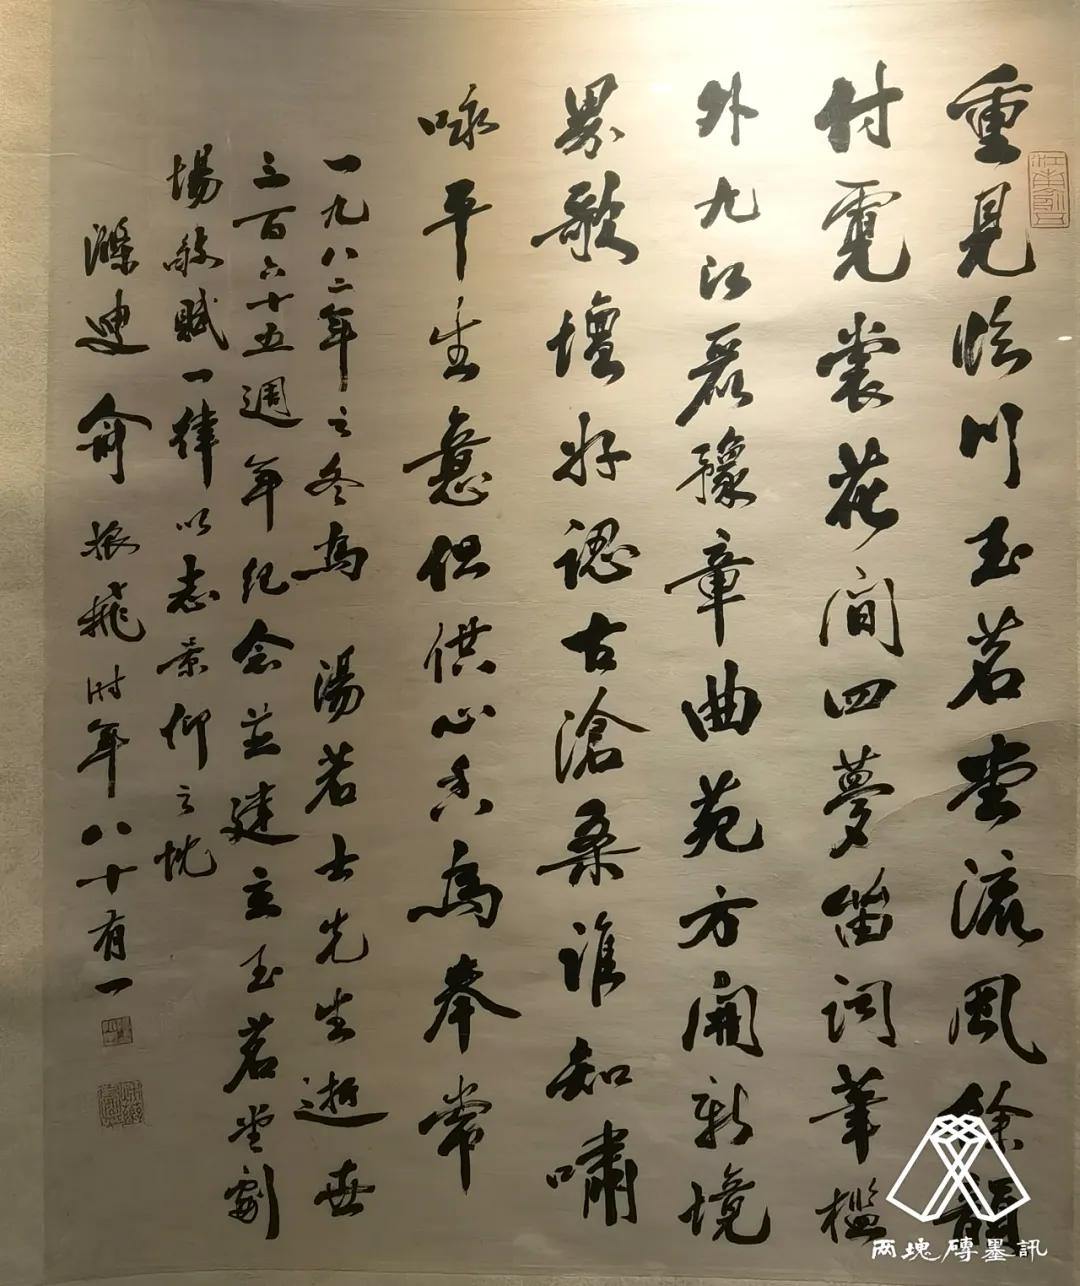 重見臨川玉茗堂流風餘韻
付霓裳花間四夢留詞筆檻
外九江豫章曲苑方開新境
界歌壇好認古滄桑誰知嘯
咏平生意但供心香為奉常
一九八二年之冬為 湯若士先生逝世
三百六十五週年紀念並建立玉茗堂劇
場敬賦一律以志景仰之忱
滌叟俞振飛時年八十有一
两塊磚墨訊